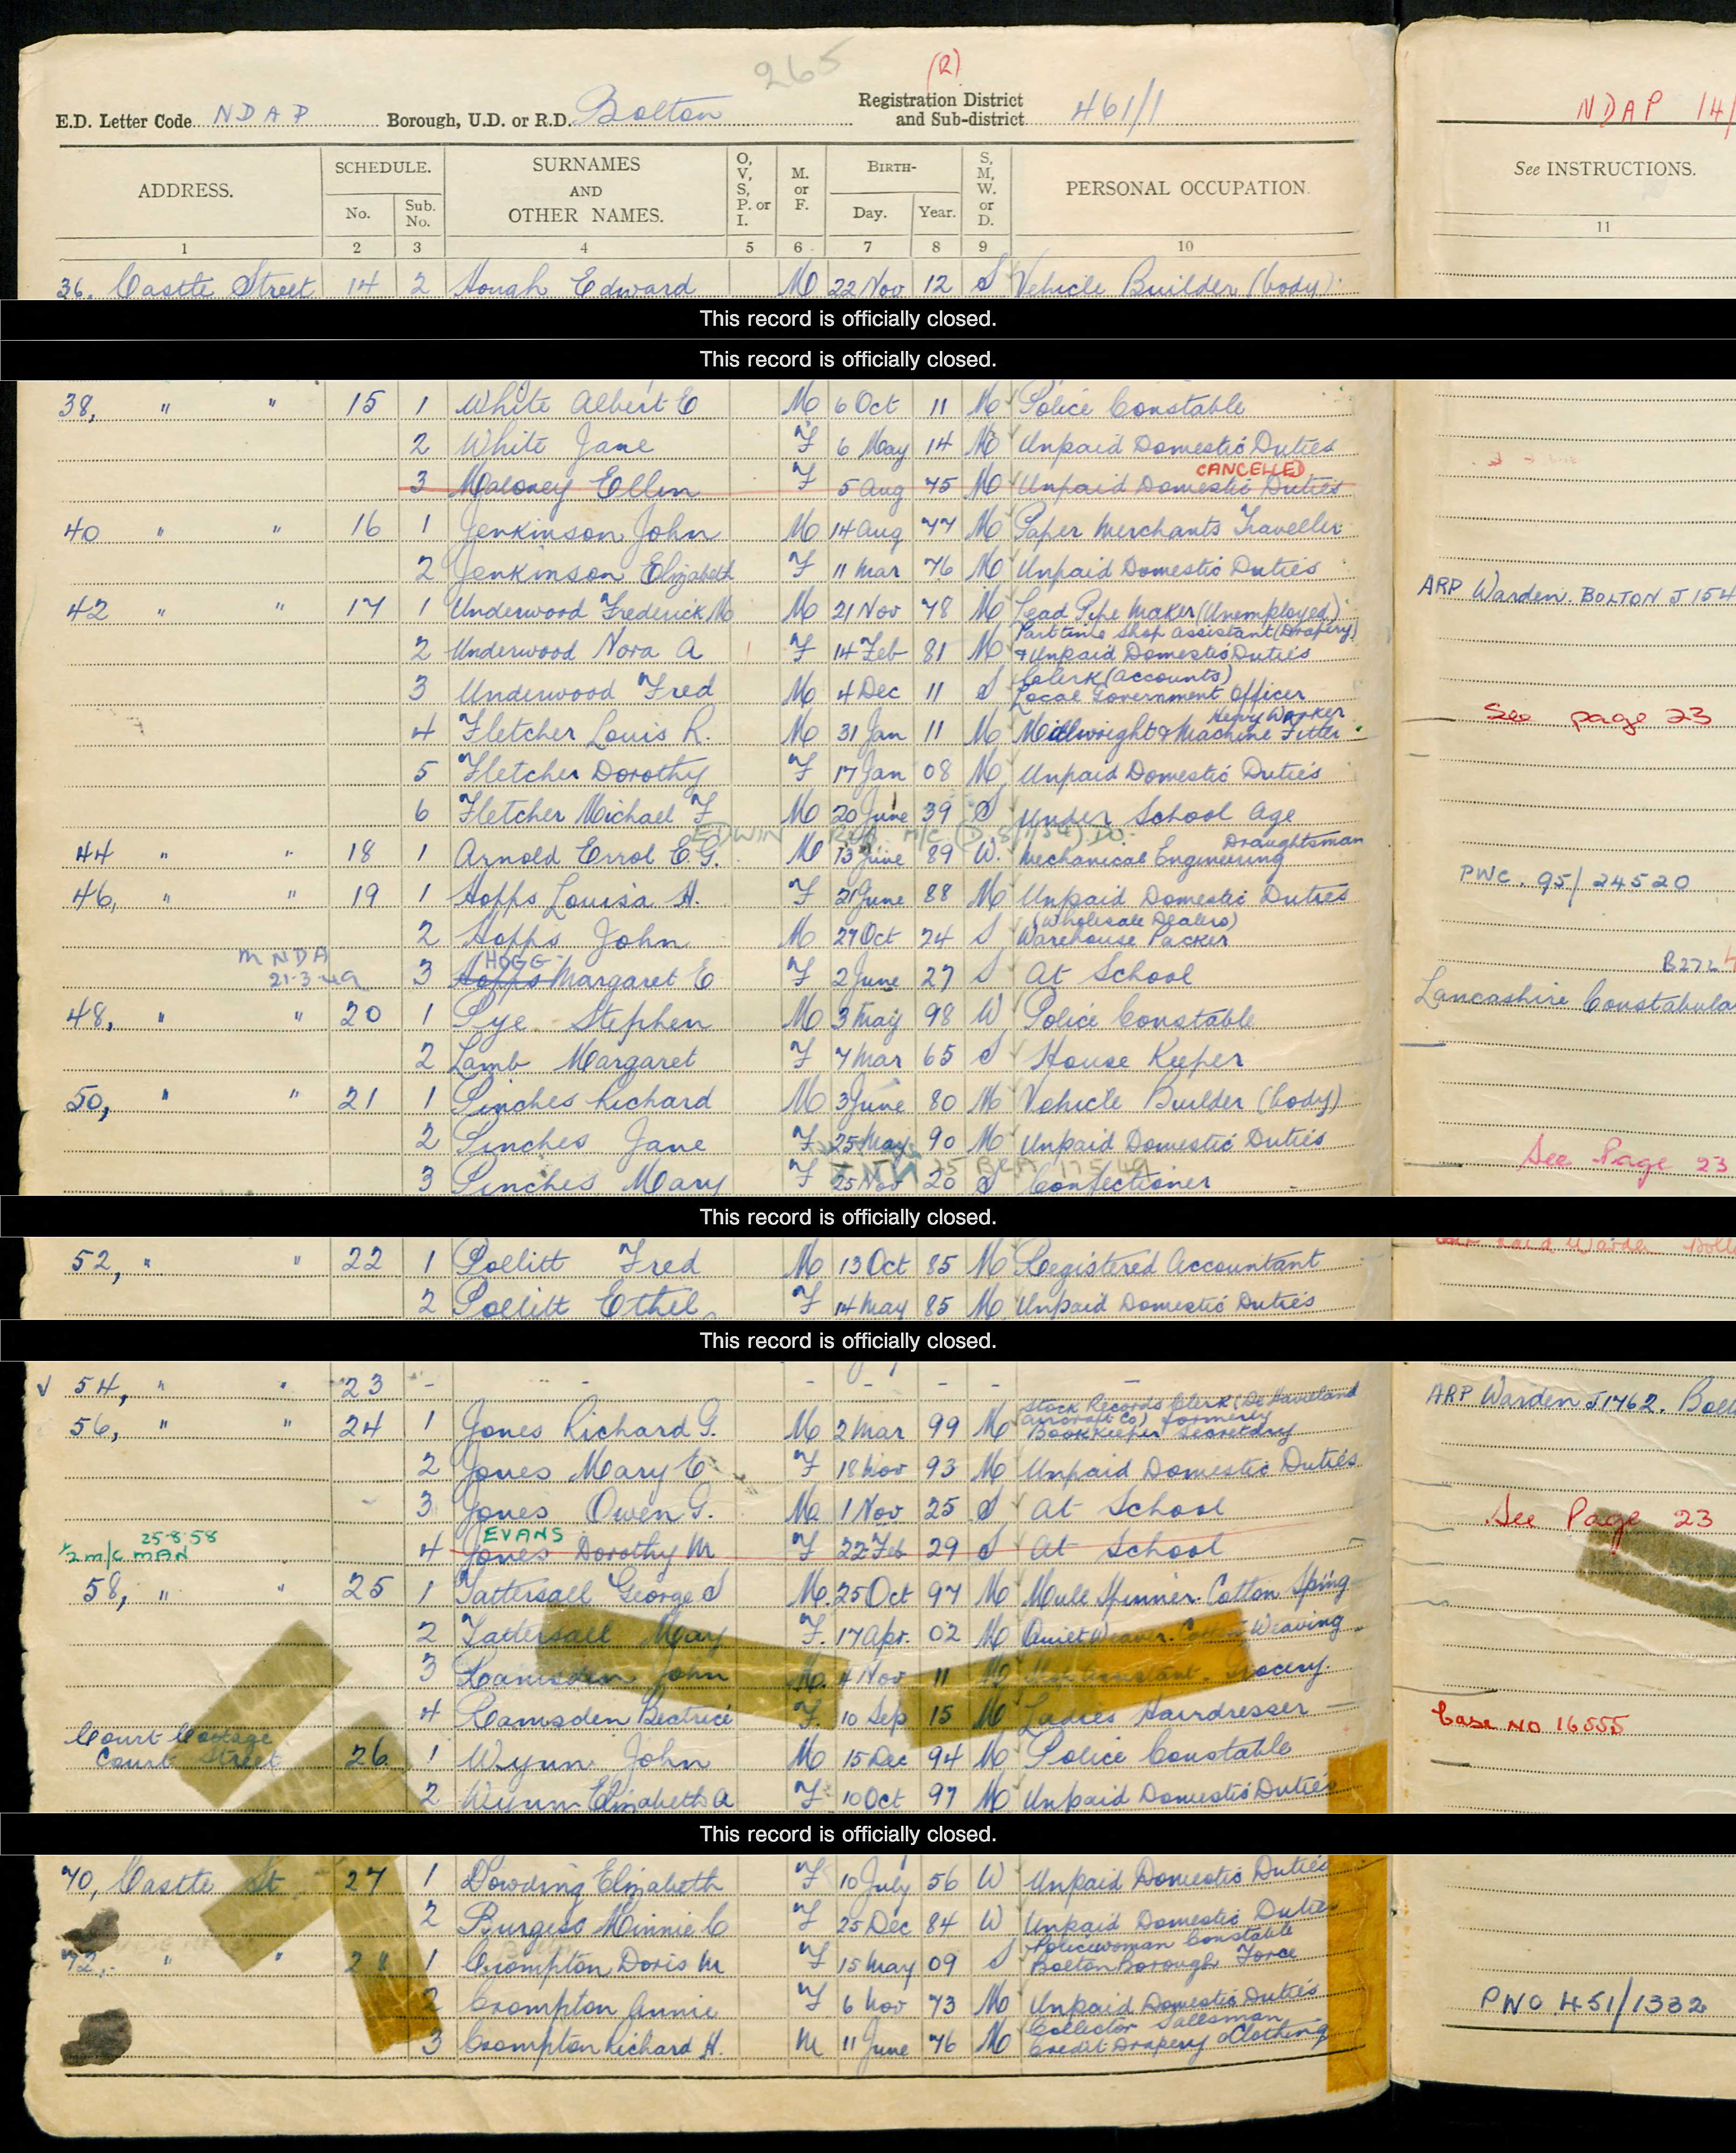 265
(R)
E.D. Letter Code NDAP Borough, U.D. or R.D. Bolton Registration District and Sub-district 461/1
NDAP 14/
ADDRESS. SCHEDULE. SURNAMES AND OTHER NAMES. O, V, S, P. or I. M. or F. BIRTH- S, M, W. or D. PERSONAL OCCUPATION. See INSTRUCTIONS.
No. Sub. No. Day. Year.
1 2 3 4 5 6 7 8 9 10 11
36. Castle Street 14 2 Hough Edward M 22 Nov 12 S Vehicle Builder (body)
This record is officially closed.
This record is officially closed.
38, " " 15 1 White Albert E M 6 Oct 11 M Police Constable
2 White Jane F 6 May 14 M Unpaid Domestic Duties
CANCELLED
3 Maloney Ellen F 5 Aug 75 M Unpaid Domestic Duties
40 " " 16 1 Jenkinson John M 14 Aug 77 M Paper Merchants Traveller
2 Jenkinson Elizabeth F 11 Mar 76 M Unpaid Domestic Duties
ARP Warden. BOLTON J154
42 " " 17 1 Underwood Frederick M 21 Nov 78 M Lead Pipe Maker (Unemployed)
Part time Shop Assistant (Drapery)
2 Underwood Nora A F 14 Feb 81 M & Unpaid Domestic Duties
Clerk (Accounts)
3 Underwood Fred M 4 Dec 11 S Local Government Officer
Heavy Worker
See page 23
4 Fletcher Louis R. M 31 Jan 11 M Millwright & Machine Fitter
5 Fletcher Dorothy F 17 Jan 08 M Unpaid Domestic Duties
6 Fletcher Michael F M 20 June 39 S Under School Age
EDWIN
Draughtsman
44 " " 18 1 Arnold Errol E.G. M 13 June 89 W. Mechanical Engineering
PWC. 95/24520
46, " " 19 1 Hopps Louisa H. F 21 June 88 M Unpaid Domestic Duties
(Wholesale Dealers)
2 Hopps John M 27 Oct 24 S Warehouse Packer
M NDA
21-3-49 HOGG
B272
3 Hopps Margaret E F 2 June 27 S At School
Lancashire Constabula
48, " " 20 1 Pye Stephen M 3 May 98 W Police Constable
2 Lamb Margaret F 7 Mar 65 S House Keeper
50, " " 21 1 Pinches Richard M 3 June 80 M Vehicle Builder (body)
2 Pinches Jane F 25 May 90 M Unpaid Domestic Duties
See Page 23
3 Pinches Mary F 25 Nov 20 S Confectioner
This record is officially closed.
52, " " 22 1 Pollitt Fred M 13 Oct 85 M Registered Accountant
2 Pollitt Ethel F 14 May 85 M Unpaid Domestic Duties
This record is officially closed.
✓ 54, " " 23 - - - - - - -
ARP Warden J1762. Bolt
Stock Records Clerk (De Havilland
Aircraft Co) formerly
56, " " 24 1 Jones Richard G. M 2 Mar 99 M Bookkeeper Secretary
2 Jones Mary E F 18 Nov 93 M Unpaid Domestic Duties
3 Jones Owen G. M 1 Nov 25 S At School
See Page 23
25-8-58 EVANS
m/c MAN
4 Jones Dorothy M F 22 Feb 29 S At School
58, " " 25 1 Tattersall George S M. 25 Oct 97 M Mule Spinner. Cotton Sping
2 Tattersall May F. 17 Apr. 02 M Quilt Weaver. Cotton Weaving
3 Ramsden John M. 4 Nov 11 M Grocery.
4 Ramsden Beatrice F. 10 Sep 15 M Ladies Hairdresser
Case NO 16555
Court Cottage
Court Street 26 1 Wynn John M 15 Dec 94 M Police Constable
2 Wynn Elizabeth A F 10 Oct 97 M Unpaid Domestic Duties
This record is officially closed.
70, Castle St 27 1 Dowding Elizabeth F 10 July 56 W Unpaid Domestic Duties
2 Burgess Minnie C F 25 Dec 84 W Unpaid Domestic Duties
Policewoman Constable
72, " " 28 1 Crompton Doris M F 15 May 09 S Bolton Borough Force
2 Crompton Annie F 6 Nov 73 M Unpaid Domestic Duties
PWO 451/1332
Collector Salesman
3 Crompton Richard H. M 11 June 76 M Credit Drapery & Clothing